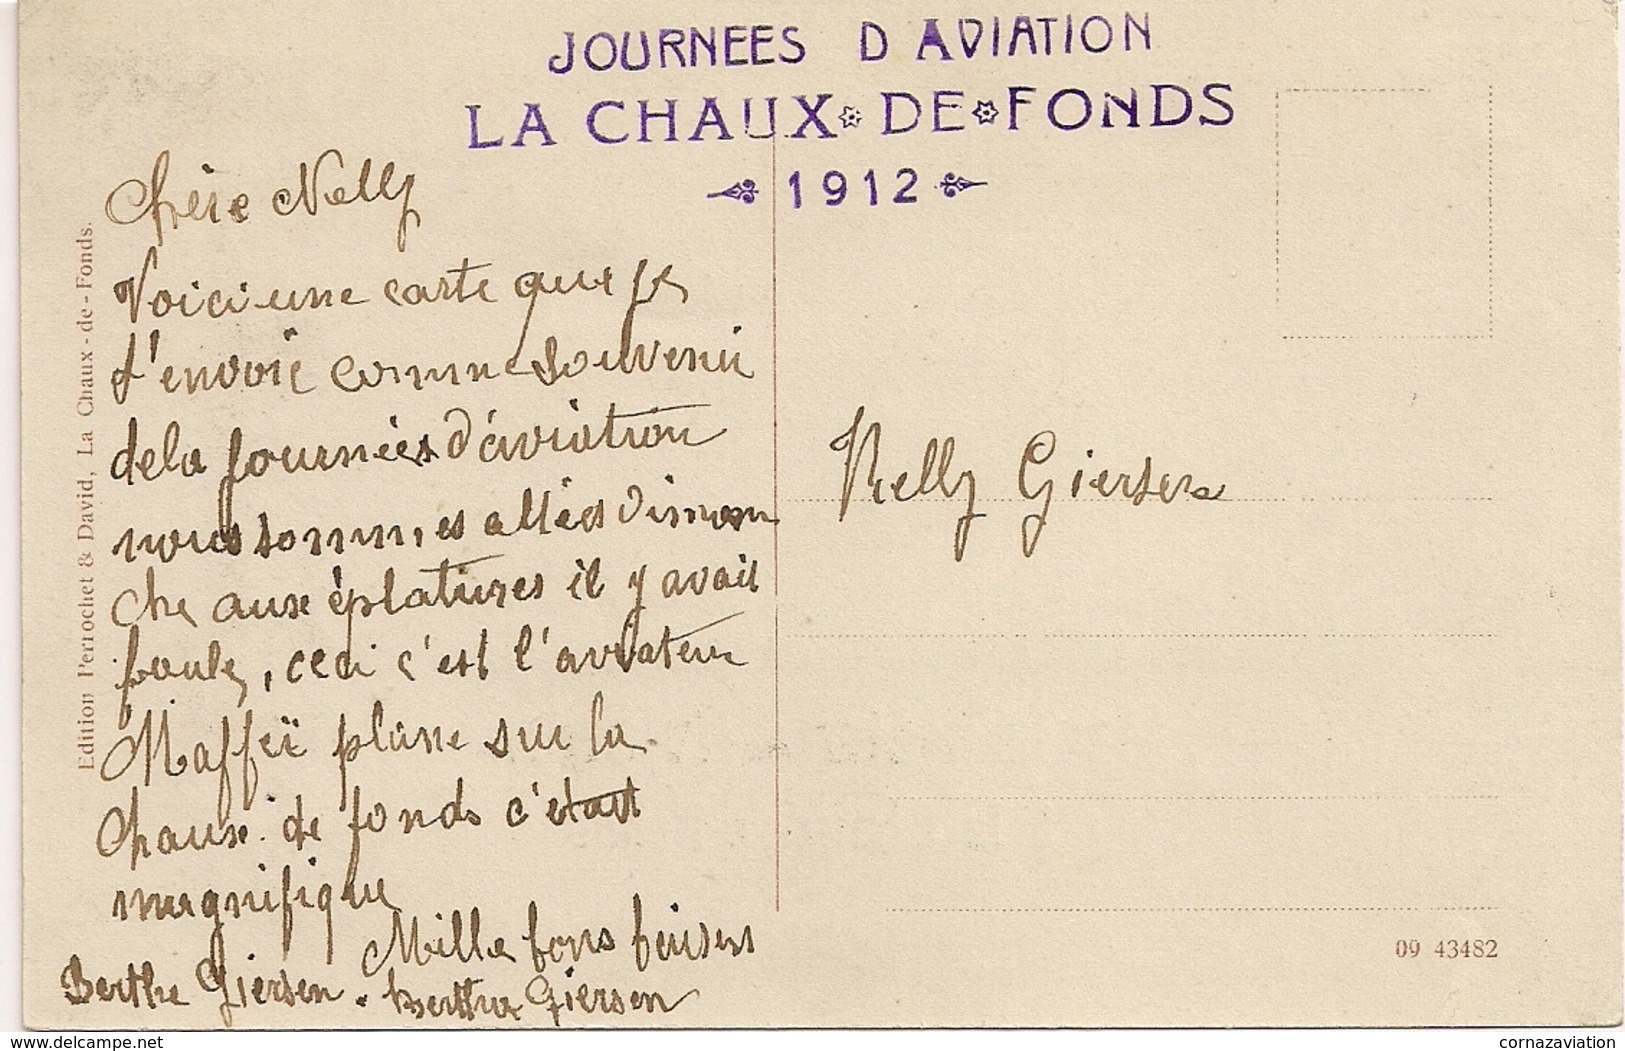 JOURNEES D AVIATION
LA CHAUX DE FONDS
1912
Edition Perrochet & David, La Chaux-de-Fonds.
Chère Nelly
Voici une carte que je
t'envoie comme souvenir
dela journées d'aviation
nous sommes allées diman
che aux éplatures il y avait
foule, ceci c'est l'aviateur
Maffeï plane sur la
Chaux de fonds c'était
magnifique
Mille bons baisers
Berthe Giersen. Berthe Giersen
Nelly Giersen
09 43482
delcampe.net
cornazaviation